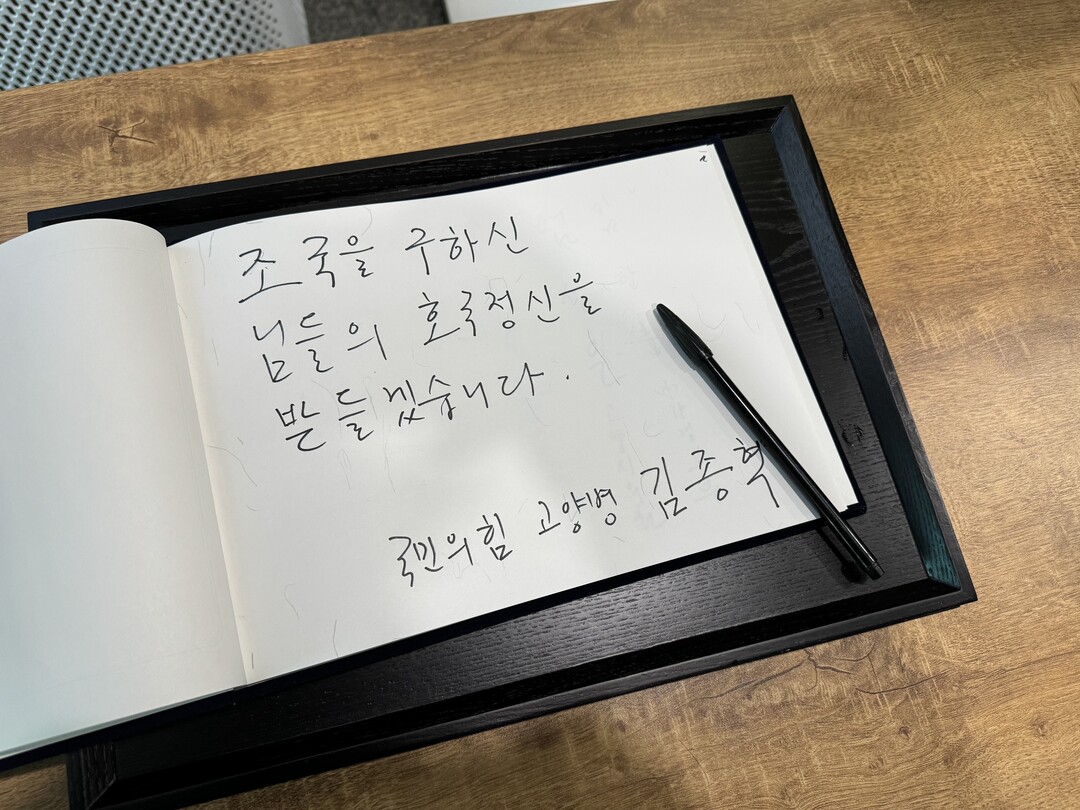 조국을 구하신
님들의 호국정신을
받들겠습니다.
국민의힘 고양병 김종혁